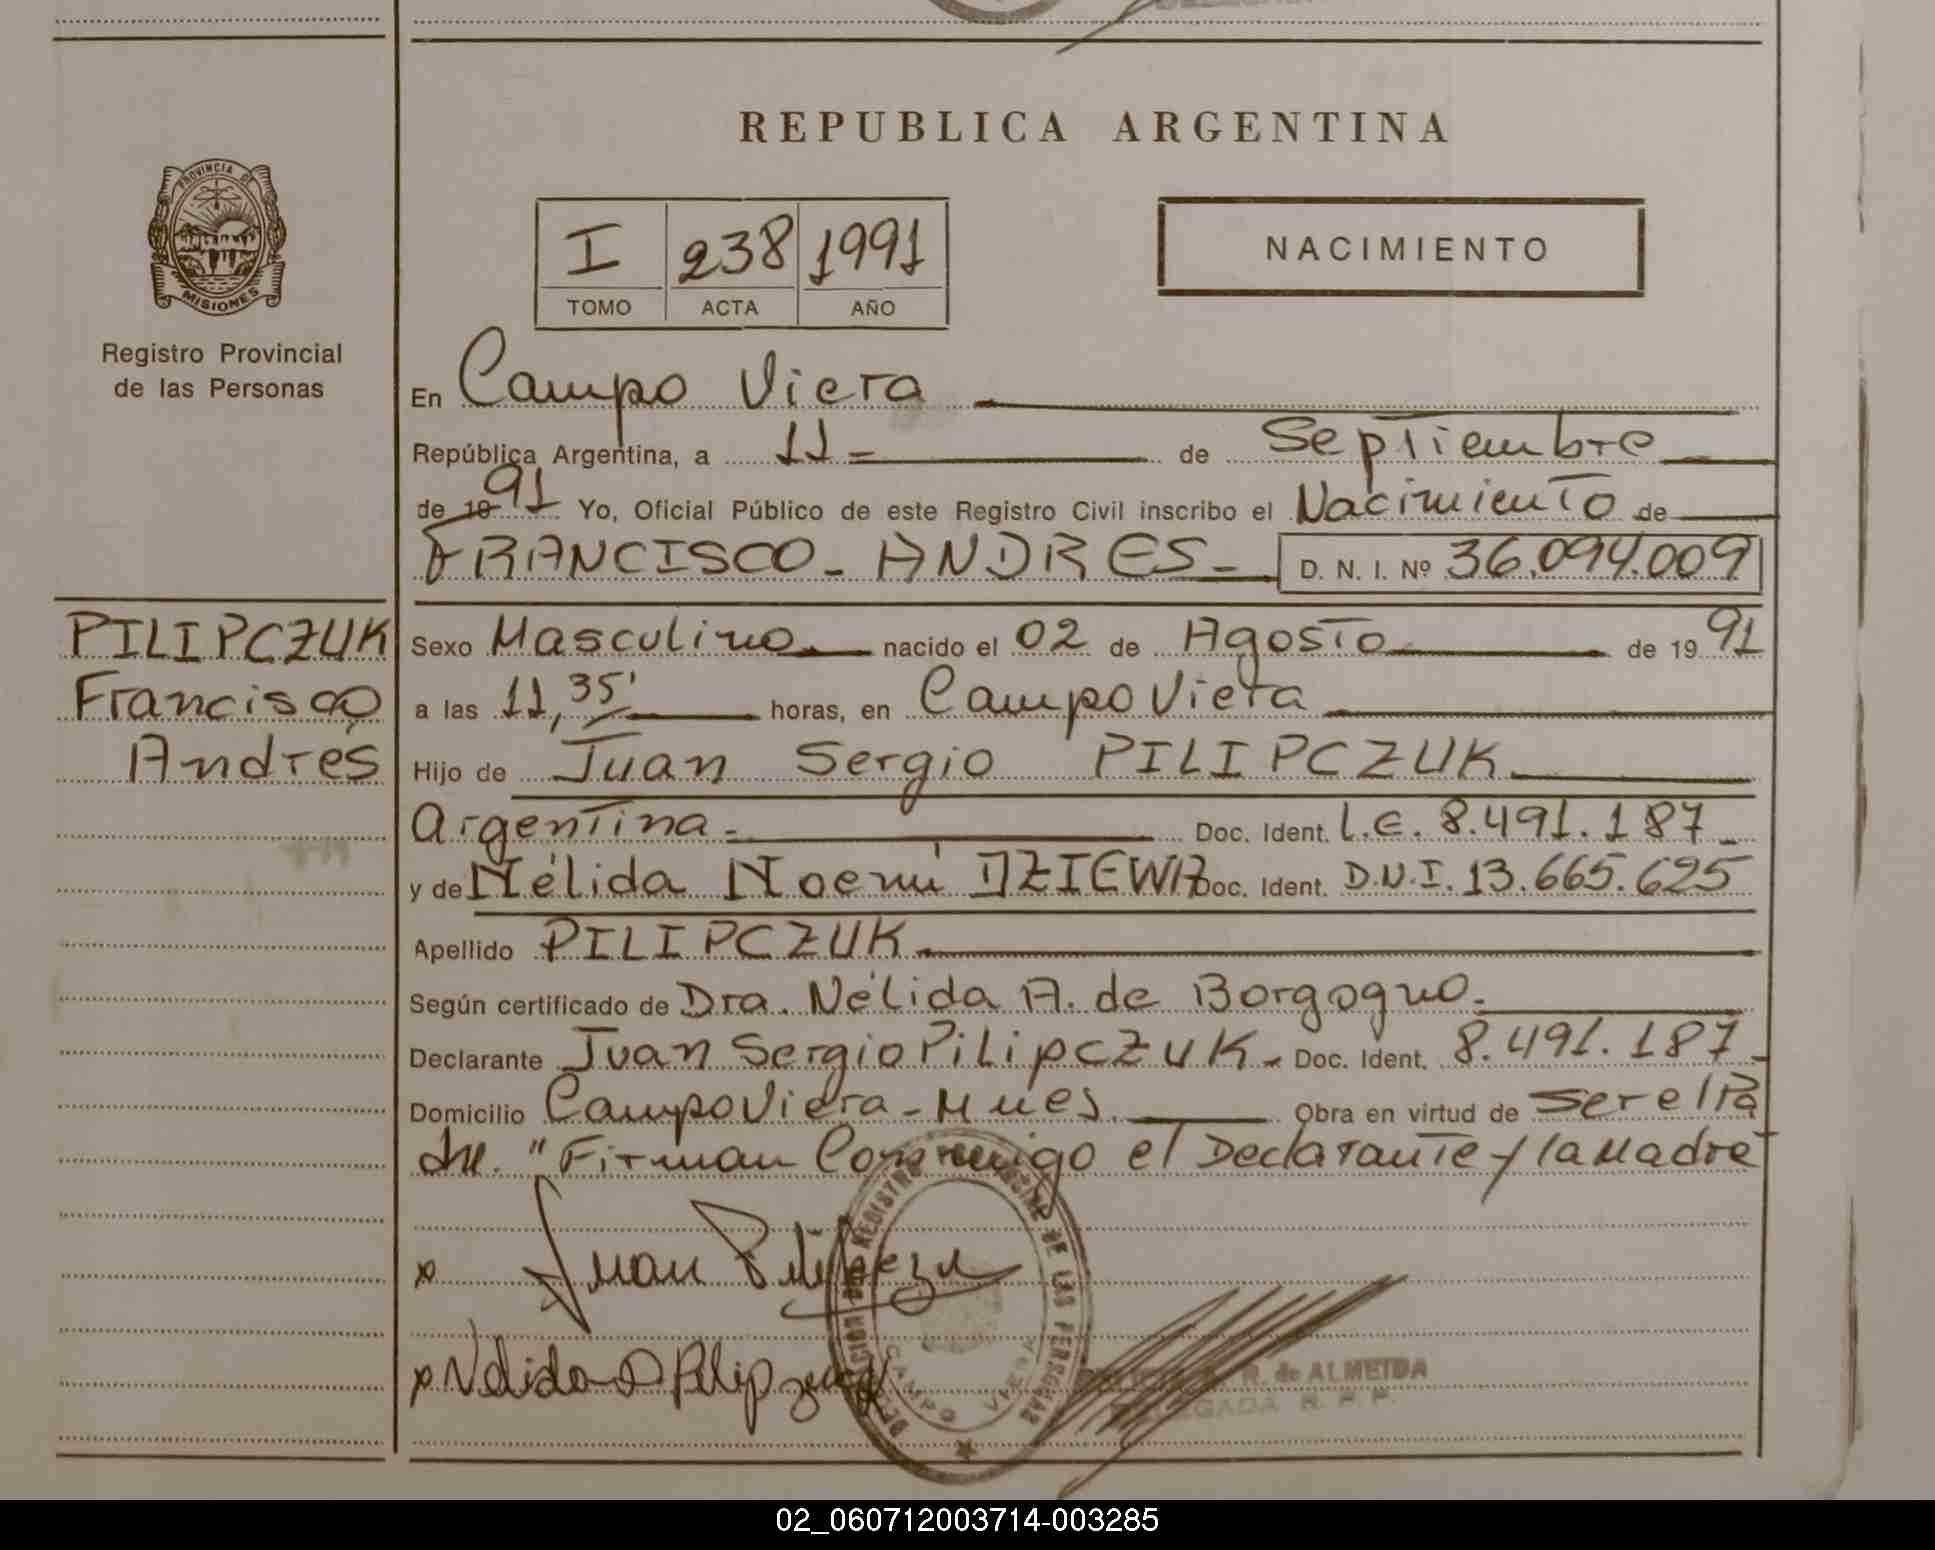 REPUBLICA ARGENTINA
PROVINCIA DE
MISIONES
Registro Provincial
de las Personas
I 238 1991
TOMO ACTA AÑO
NACIMIENTO
En Campo Viera
República Argentina, a 11 de Septiembre
de 19 91 Yo, Oficial Público de este Registro Civil inscribo el Nacimiento de
FRANCISCO - ANDRES - D. N. I. Nº 36.094.009
PILIPCZUK
Francisco
Andrés
Sexo Masculino nacido el 02 de Agosto de 19 91
a las 11,35' horas, en Campo Viera
Hijo de Juan Sergio PILIPCZUK
Argentina.- Doc. Ident. L.E. 8.491.187
y de Nélida Noemí DZIEWA Doc. Ident. D.N.I. 13.665.625
Apellido PILIPCZUK
Según certificado de Dra. Nélida A. de Borgogno.
Declarante Juan Sergio Pilipczuk - Doc. Ident. 8.491.187 -
Domicilio Campo Viera - Mnes. Obra en virtud de ser el Pa
dre. "Firman Conmigo el Declarante y la Madre
x Juan Pilipczu
x Nelida D Pilipzuck
DELEGACION DEL REGISTRO PROVINCIAL DE LAS PERSONAS
CAMPO VIERA
R. de ALMEIDA
DELEGADA R. P. P.
02_060712003714-003285